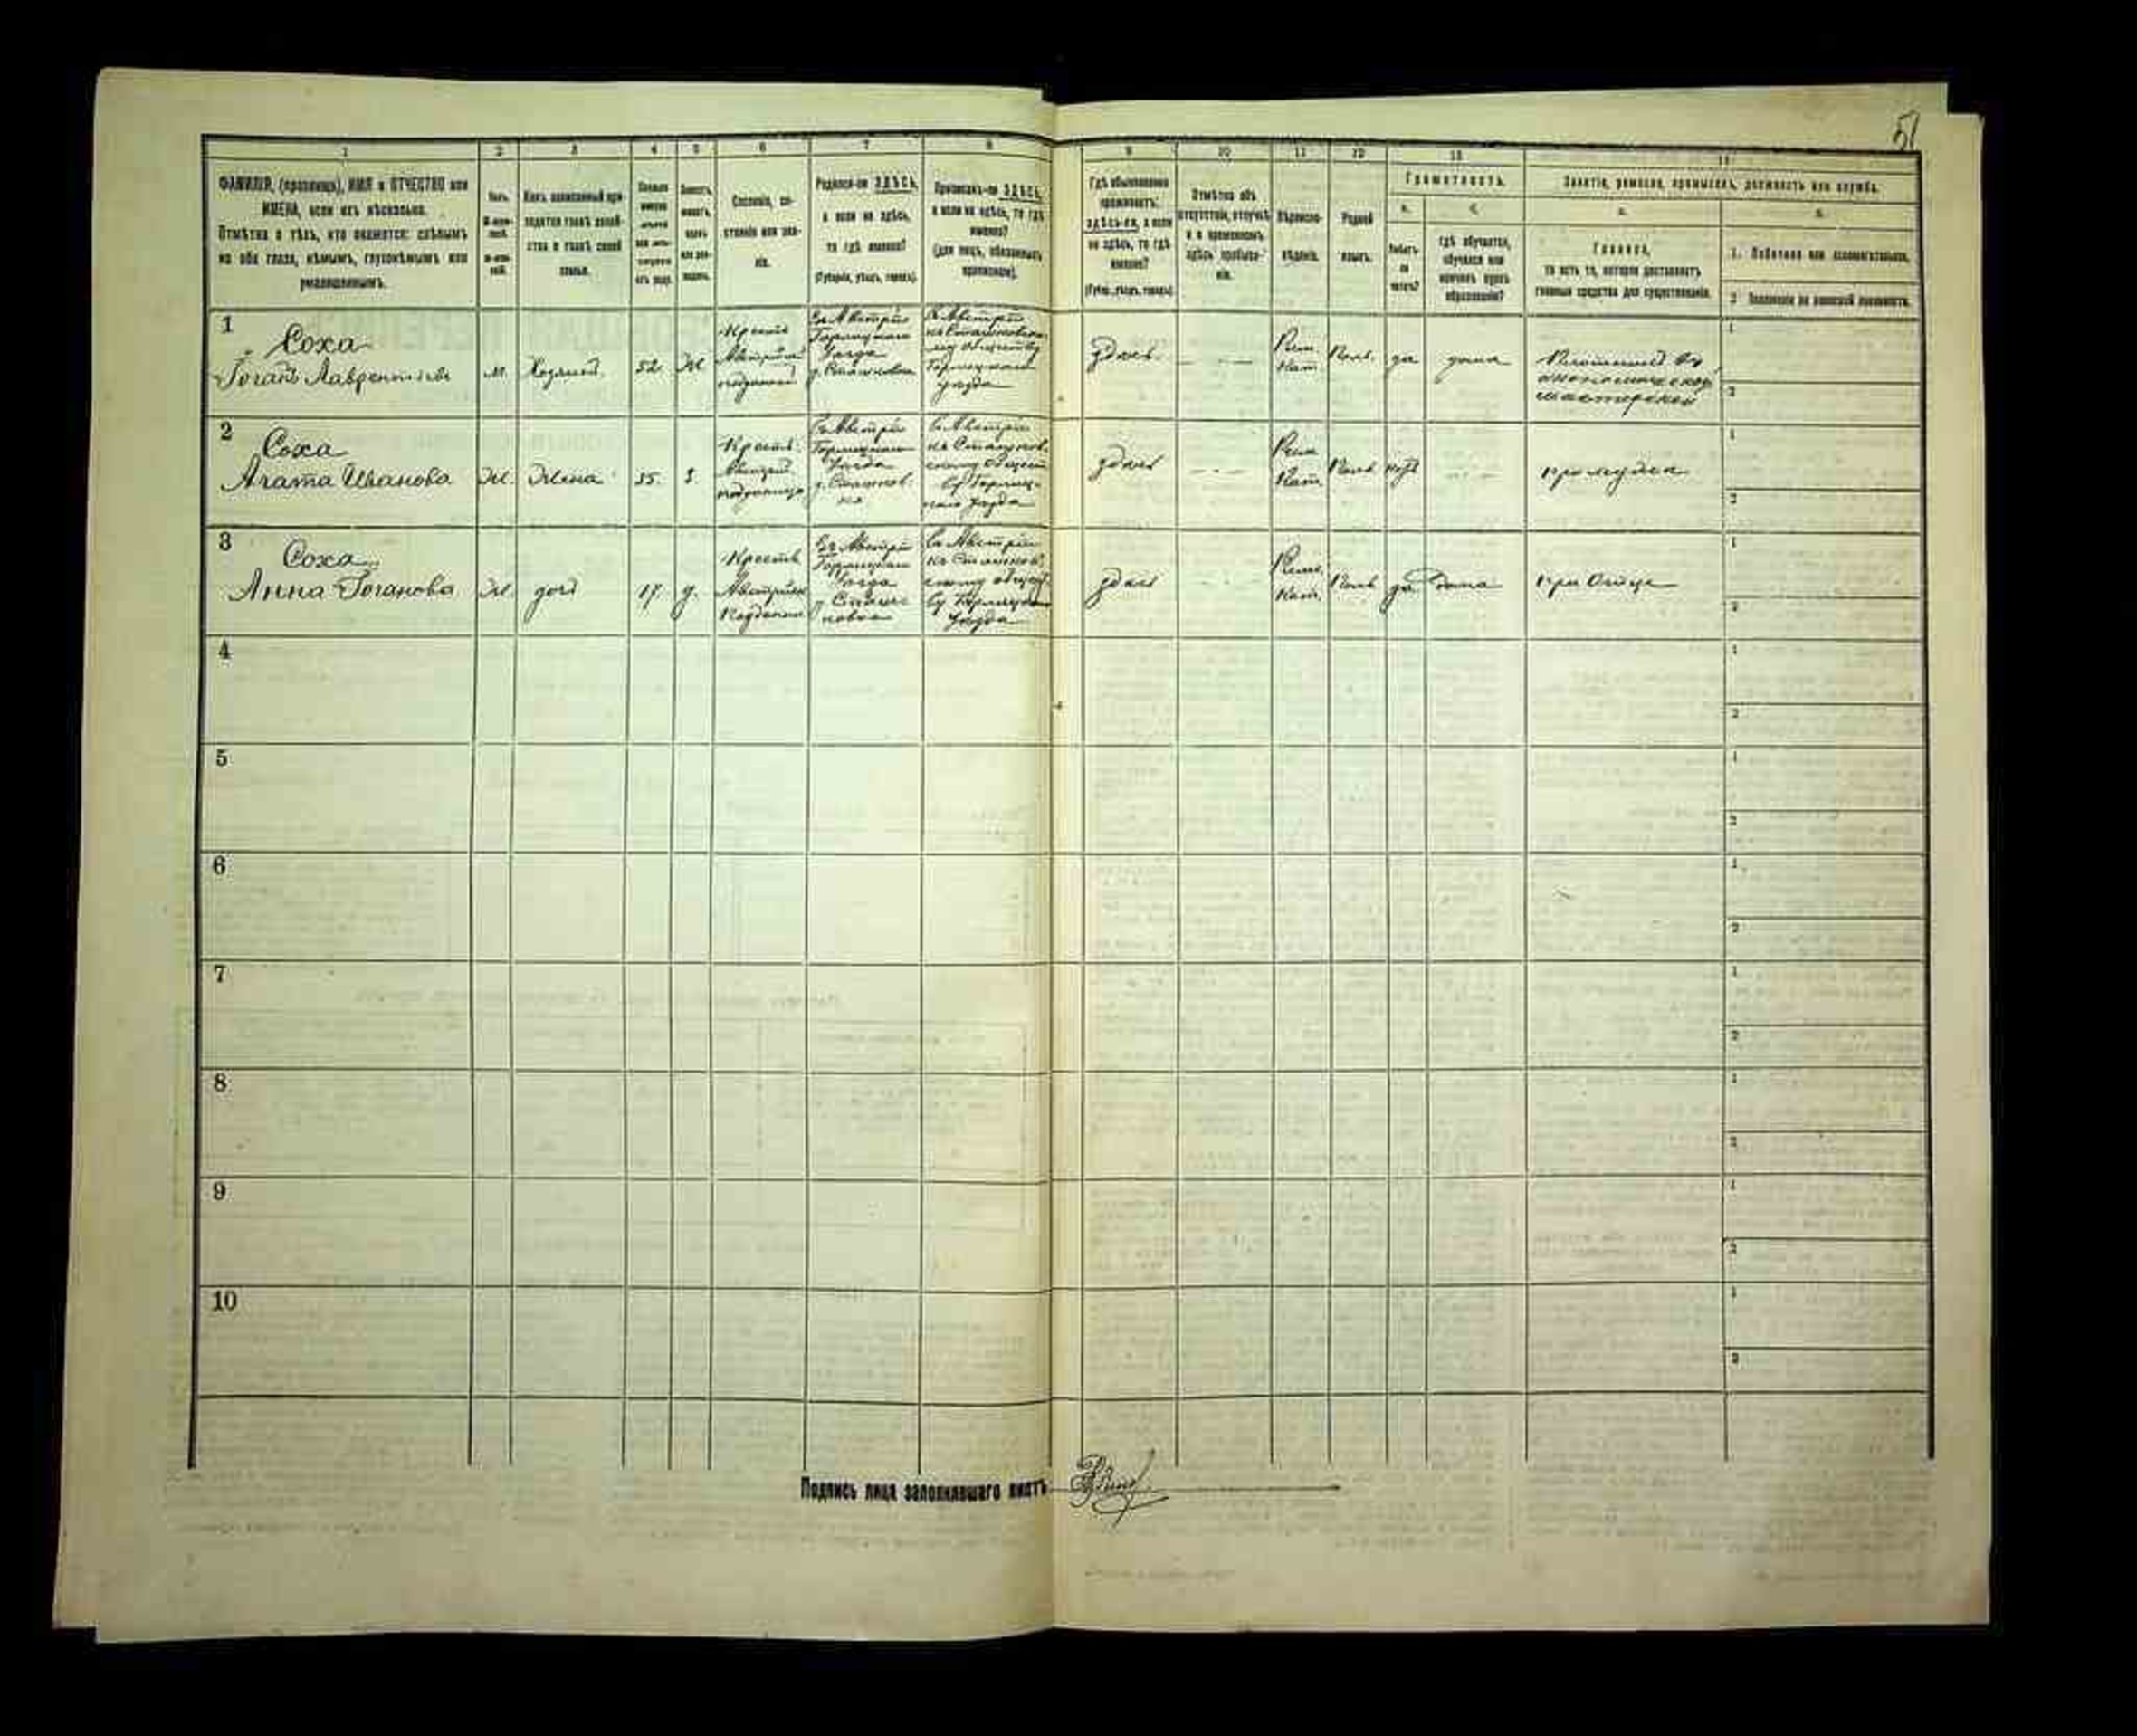 51
1 2 3 4 5 6 7 8 9 10 11 12 13 14
ФАМИЛІЯ, (прозвище), ИМЯ и ОТЧЕСТВО или
ИМЕНА, если ихъ нѣсколько.
Отмѣтка о тѣхъ, кто окажется: слѣпымъ
на оба глаза, нѣмымъ, глухонѣмымъ или
умалишеннымъ.
Полъ.
Какъ записанный при-
ходится главѣ хозяй-
ства и главѣ своей
семьи.
Сословіе, со-
стояніе или зва-
ніе.
Родился-ли ЗДѢСЬ,
а если не здѣсь,
то гдѣ именно?
(Губернія, уѣздъ, городъ).
Приписанъ-ли ЗДѢСЬ,
а если не здѣсь, то гдѣ
именно?
(для лицъ, обязанныхъ
припискою).
Гдѣ обыкновенно
проживаетъ:
здѣсь-ли, а если
не здѣсь, то гдѣ
именно?
(Губер., уѣздъ, городъ).
Отмѣтка объ
отсутствіи, отлучкѣ
и о временномъ
здѣсь пребыва-
ніи.
Вѣроиспо-
вѣданіе.
Родной
языкъ.
Грамотность.
а. б.
Умѣетъ
ли
читать?
гдѣ обучается,
обучался или
кончилъ курсъ
образованія?
Занятіе, ремесло, промыселъ, должность или служба.
а. б.
Главное,
то есть то, которое доставляетъ
главныя средства для существованія.
1. Побочное или вспомогательное.
2 Положеніе по воинской повинности.
1
Соха
Іоганъ Лаврентьевъ
м. Хозяинъ 52. Ж
Крестъ
Австрійск
подданный
Въ Австріи
Горлицкаго
Уѣзда
д. Сташковка
Въ Австріи
къ Сташковско-
му обществу
Горлицкаго
уѣзда
здѣсь. — Рим. Кат. Поль. да дома
въ
экономической
мастерской
1
2
2
Соха
Агата Иванова
Ж. Жена 55. З.
Крестъ.
Австрій
подданная
Въ Австріи
Горлицкаго
Уѣзда
д. Сташков-
ка
Въ Австріи
къ Сташков-
скому общест
ву Горлиц-
каго Уѣзда
здѣсь — Рим Кат Поль нѣтъ —
при мужѣ
1
2
3
Соха
Анна Іоганова
Ж. дочь 17. д.
Крестъ
Австрійск
Подданная
Въ Австріи
Горлицкаго
Уѣзда
д Сташ-
ковка
Въ Австріи
къ Сташков-
скому общест
ву Горлицкаго
Уѣзда
здѣсь — Рим. Кат. Поль да дома
при Отцѣ
1
2
4
1
2
5
1
2
6
1
2
7
1
2
8
1
2
9
1
2
10
1
2
Подпись лица заполнявшаго листъ